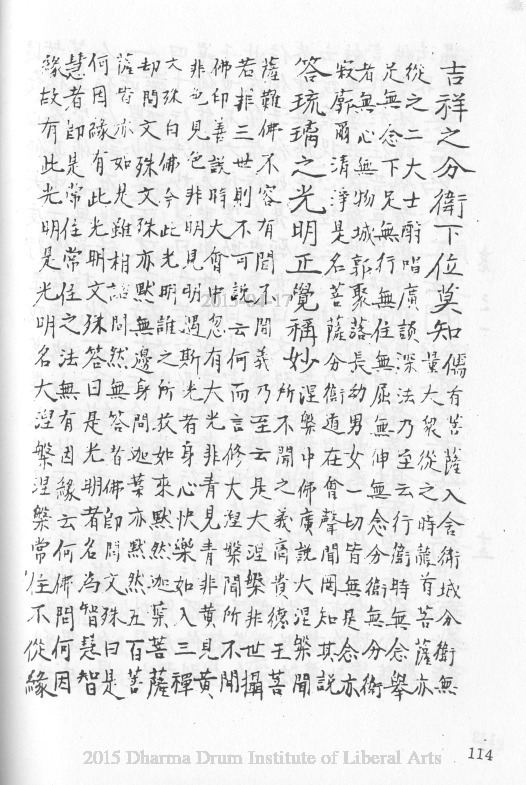 吉祥之分衛下位莫知
儒有菩薩入舍衛城分衛無
量大眾從之時龍首菩薩亦
從之二大士酧唱廣談深法乃至云行衛時無念舉
足無念下足無行無住無屈無伸無念分衛無分衛
者無心無物城郭聚落長動男女一切皆無是念亦
寂廓爾清淨是名菩薩分衛道在會聲聞罔知其說
答琉璃之光明正覺稱妙
涅槃中佛廣說大涅槃聞
所不聞之義高貴德王菩
薩難佛不容有聞不聞義乃至云是大涅槃非世攝
若非三世則不可說云何而言修大涅槃聞所不聞
佛印善說時大會中忽有大光非青見青非黃見黃
非色見色非明見明遇斯光者身心快樂如入三禪
文殊白佛今此光明誰之所放如來默然迦葉菩薩
劫問文殊文殊亦默無邊身問迦葉亦默然五百菩
薩皆亦如是雖相諮問然無答者佛即問文殊曰是
何因緣有此光明文殊答曰是光明者名為智慧智
慧者即是常住常住之法無有因緣云何佛問何因
緣故有此光明是光明名大涅槃涅槃常住不從緣
114
2015 Dharma Drum Institute of Liberal Arts